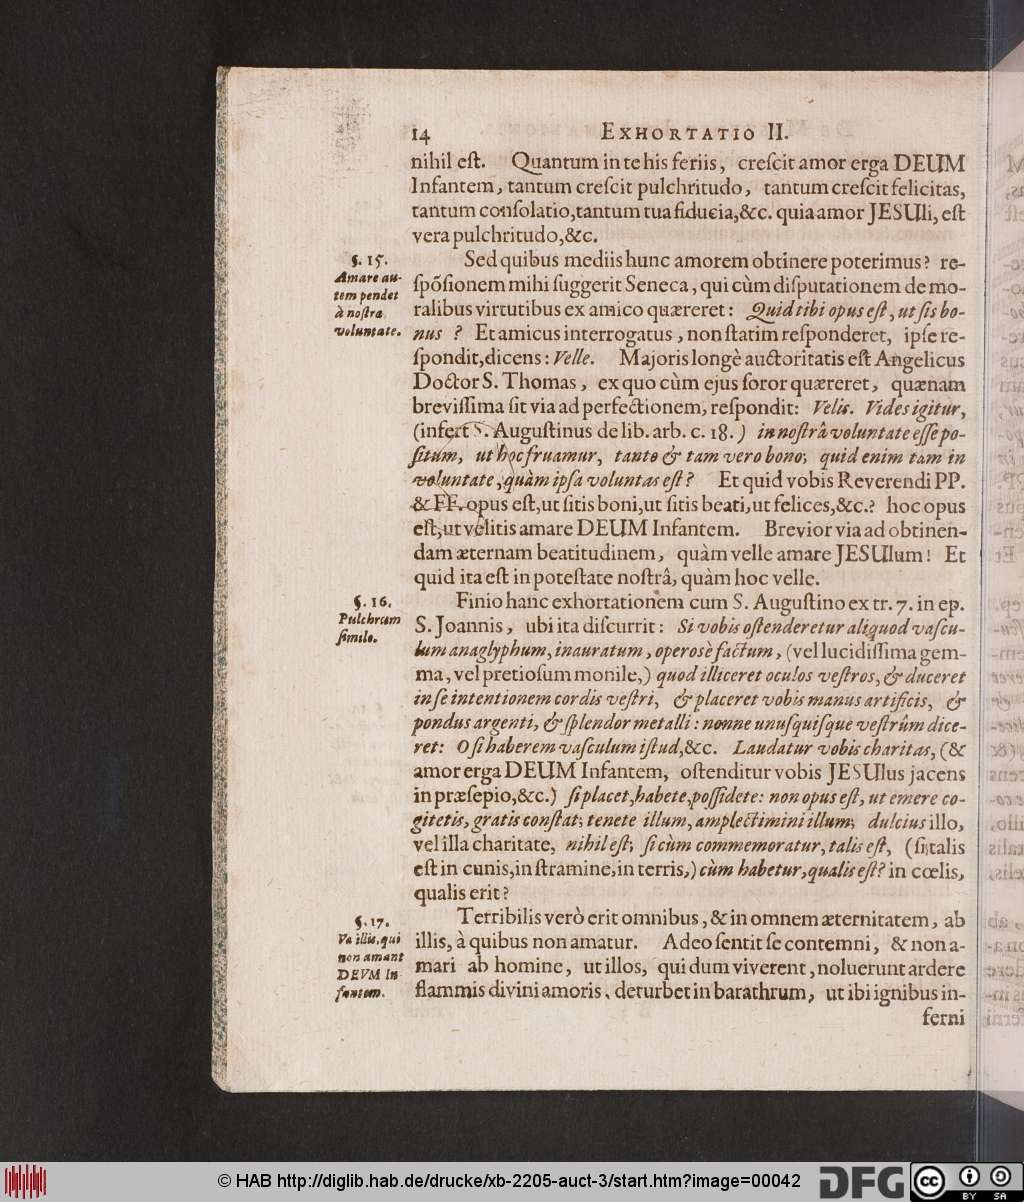 14 EXHORTATIO II.
nihil eſt. Quantum in te his feriis, creſcit amor erga DEUM
Infantem, tantum creſcit pulchritudo, tantum creſcit felicitas,
tantum conſolatio, tantum tua fiducia, &c. quia amor JESUli, eſt
vera pulchritudo, &c.
§. 15.
Amare au-
tem pendet
à noſtra
voluntate.
Sed quibus mediis hunc amorem obtinere poterimus? re-
ſpõſionem mihi ſuggerit Seneca, qui cùm diſputationem de mo-
ralibus virtutibus ex amico quæreret: Quid tibi opus eſt, ut ſis bo-
nus ? Et amicus interrogatus, non ſtatim reſponderet, ipſe re-
ſpondit, dicens: Velle. Majoris longè auctoritatis eſt Angelicus
Doctor S. Thomas, ex quo cùm ejus ſoror quæreret, quænam
breviſſima ſit via ad perfectionem, reſpondit: Velis. Vides igitur,
(infert S. Auguſtinus de lib. arb. c. 18.) in noſtrâ voluntate eſſe po-
ſitum, ut hoc fruamur, tanto & tam vero bono; quid enim tam in
voluntate, quàm ipſa voluntas eſt? Et quid vobis Reverendi PP.
& FF. opus eſt, ut ſitis boni, ut ſitis beati, ut felices, &c.? hoc opus
eſt, ut velitis amare DEUM Infantem. Brevior via ad obtinen-
dam æternam beatitudinem, quàm velle amare JESUlum! Et
quid ita eſt in poteſtate noſtrâ, quàm hoc velle.
§. 16.
Pulchrum
ſimile.
Finio hanc exhortationem cum S. Auguſtino ex tr. 7. in ep.
S. Joannis, ubi ita diſcurrit: Si vobis oſtenderetur aliquod vaſcu-
lum anaglyphum, inauratum, operosè factum, (vel lucidiſſima gem-
ma, vel pretioſum monile,) quod illiceret oculos veſtros, & duceret
in ſe intentionem cordis veſtri, & placeret vobis manus artificis, &
pondus argenti, & ſplendor metalli: nonne unuſquiſque veſtrûm dice-
ret: O ſi haberem vaſculum iſtud, &c. Laudatur vobis charitas, (&
amor erga DEUM Infantem, oſtenditur vobis JESUlus jacens
in præſepio, &c.) ſi placet, habete, poſſidete: non opus eſt, ut emere co-
gitetis, gratis conſtat; tenete illum, amplectimini illum; dulcius illo,
vel illa charitate, nihil eſt; ſi cùm commemoratur, talis eſt, (ſi talis
eſt in cunis, in ſtramine, in terris,) cùm habetur, qualis eſt? in cœlis,
qualis erit?
§. 17.
Væ illis, qui
non amant
DEVM In
fantem.
Terribilis verò erit omnibus, & in omnem æternitatem, ab
illis, à quibus non amatur. Adeo ſentit ſe contemni, & non a-
mari ab homine, ut illos, qui dum viverent, noluerunt ardere
flammis divini amoris, deturbet in barathrum, ut ibi ignibus in-
ferni
© HAB http://diglib.hab.de/drucke/xb-2205-auct-3/start.htm?image=00042
DFG
cc
BY SA